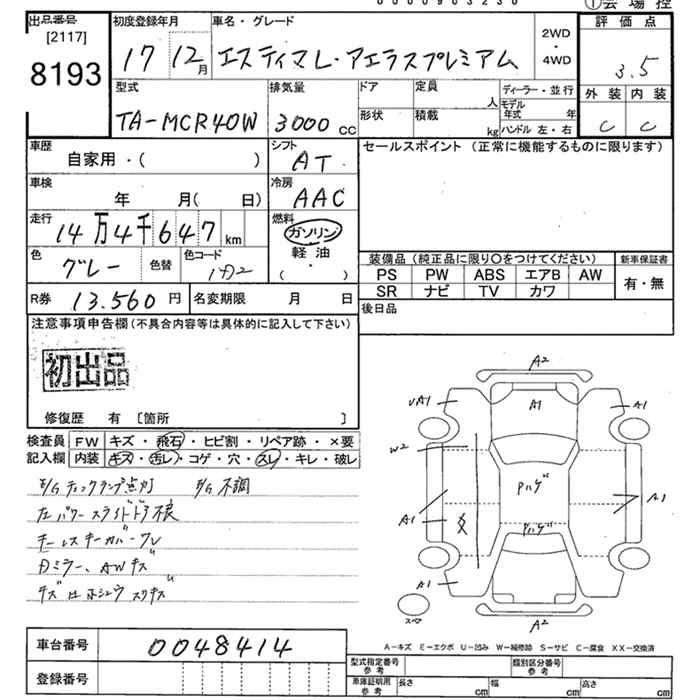 0000903230 ①会場控
出品番号 初度登録年月 車名・グレード 評価点
[2117] 2WD
8193 17 12月 エスティマL・アエラスプレミアム ・ 3.5
4WD
型式 排気量 ドア 定員 ディーラー・並行 外装 内装
人 モデル年式 年
TA-MCR40W 3000cc 形状 積載 kg ハンドル 左・右 C C
車歴 シフト セールスポイント (正常に機能するものに限ります)
自家用・( ) AT
車検 冷房
年 月( 日) AAC
走行 燃料
14万4千647km ガソリン
色 色コード 軽油 装備品(純正品に限り○をつけてください) 新車保証書
グレー 色替 1D2 ・ PS PW ABS エアB AW 有・無
( ) SR ナビ TV カワ
R券 13.560円 名変期限 月 日 後日品
注意事項申告欄(不具合内容等は具体的に記入して下さい)
初出品
修復歴 有 [箇所 ]
検査員 FW キズ・飛石・ヒビ割・リペア跡・×要
記入欄 内装 キズ・汚レ・コゲ・穴・スレ・キレ・破レ
E/Gチェックランプ点灯 E/G不調
左パワースライドドア不良
キーレスキーカバーグレ
Dミラー、AWキズ
A2
UA1 A1 A1
W2
Pハゲ
A1 A1
Pハゲ
A1
スペ A2
車台番号 0048414
A-キズ E-エクボ U-凹み W-補修跡 S-サビ C-腐食 XX-交換済
登録番号 型式指定番号 参考 類別区分番号 参考
車庫証明用 参考 長さ cm 幅 cm 高さ cm